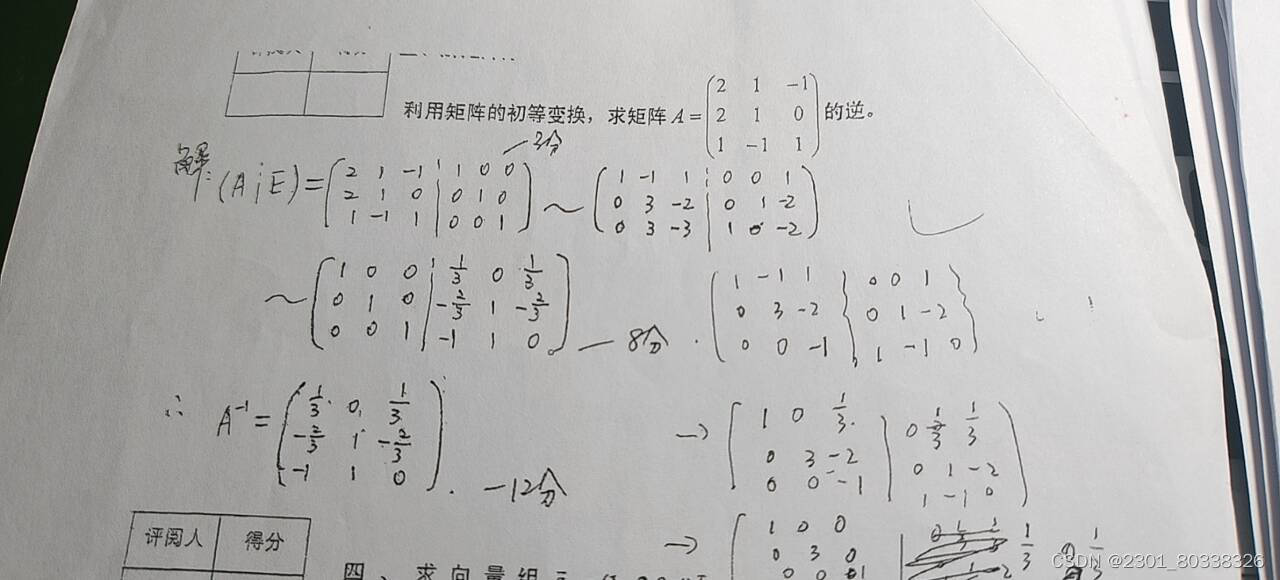 利用矩阵的初等变换，求矩阵 A = ( 2 1 -1
2 1 0
1 -1 1 ) 的逆。
解: (A ¦ E) = ( 2 1 -1 ¦ 1 0 0
2 1 0 | 0 1 0
1 -1 1 | 0 0 1 )
~ ( 1 -1 1 ¦ 0 0 1
0 3 -2 | 0 1 -2
0 3 -3 | 1 0 -2 )
~ ( 1 0 0 | 1/3 0 1/3
0 1 0 | -2/3 1 -2/3
0 0 1 | -1 1 0 ) — 8分
( 1 -1 1 | 0 0 1
0 3 -2 | 0 1 -2
0 0 -1 | 1 -1 0 )
∴ A⁻¹ = ( 1/3 0 1/3
-2/3 1 -2/3
-1 1 0 ) . — 12分
→ ( 1 0 1/3 | 0 1/3 1/3
0 3 -2 | 0 1 -2
0 0 -1 | 1 -1 0 )
→ ( 1 0 0 | 1/3 0 1/3
0 3 0
评阅人 得分
四、求向量组
CSDN @2301_80338326